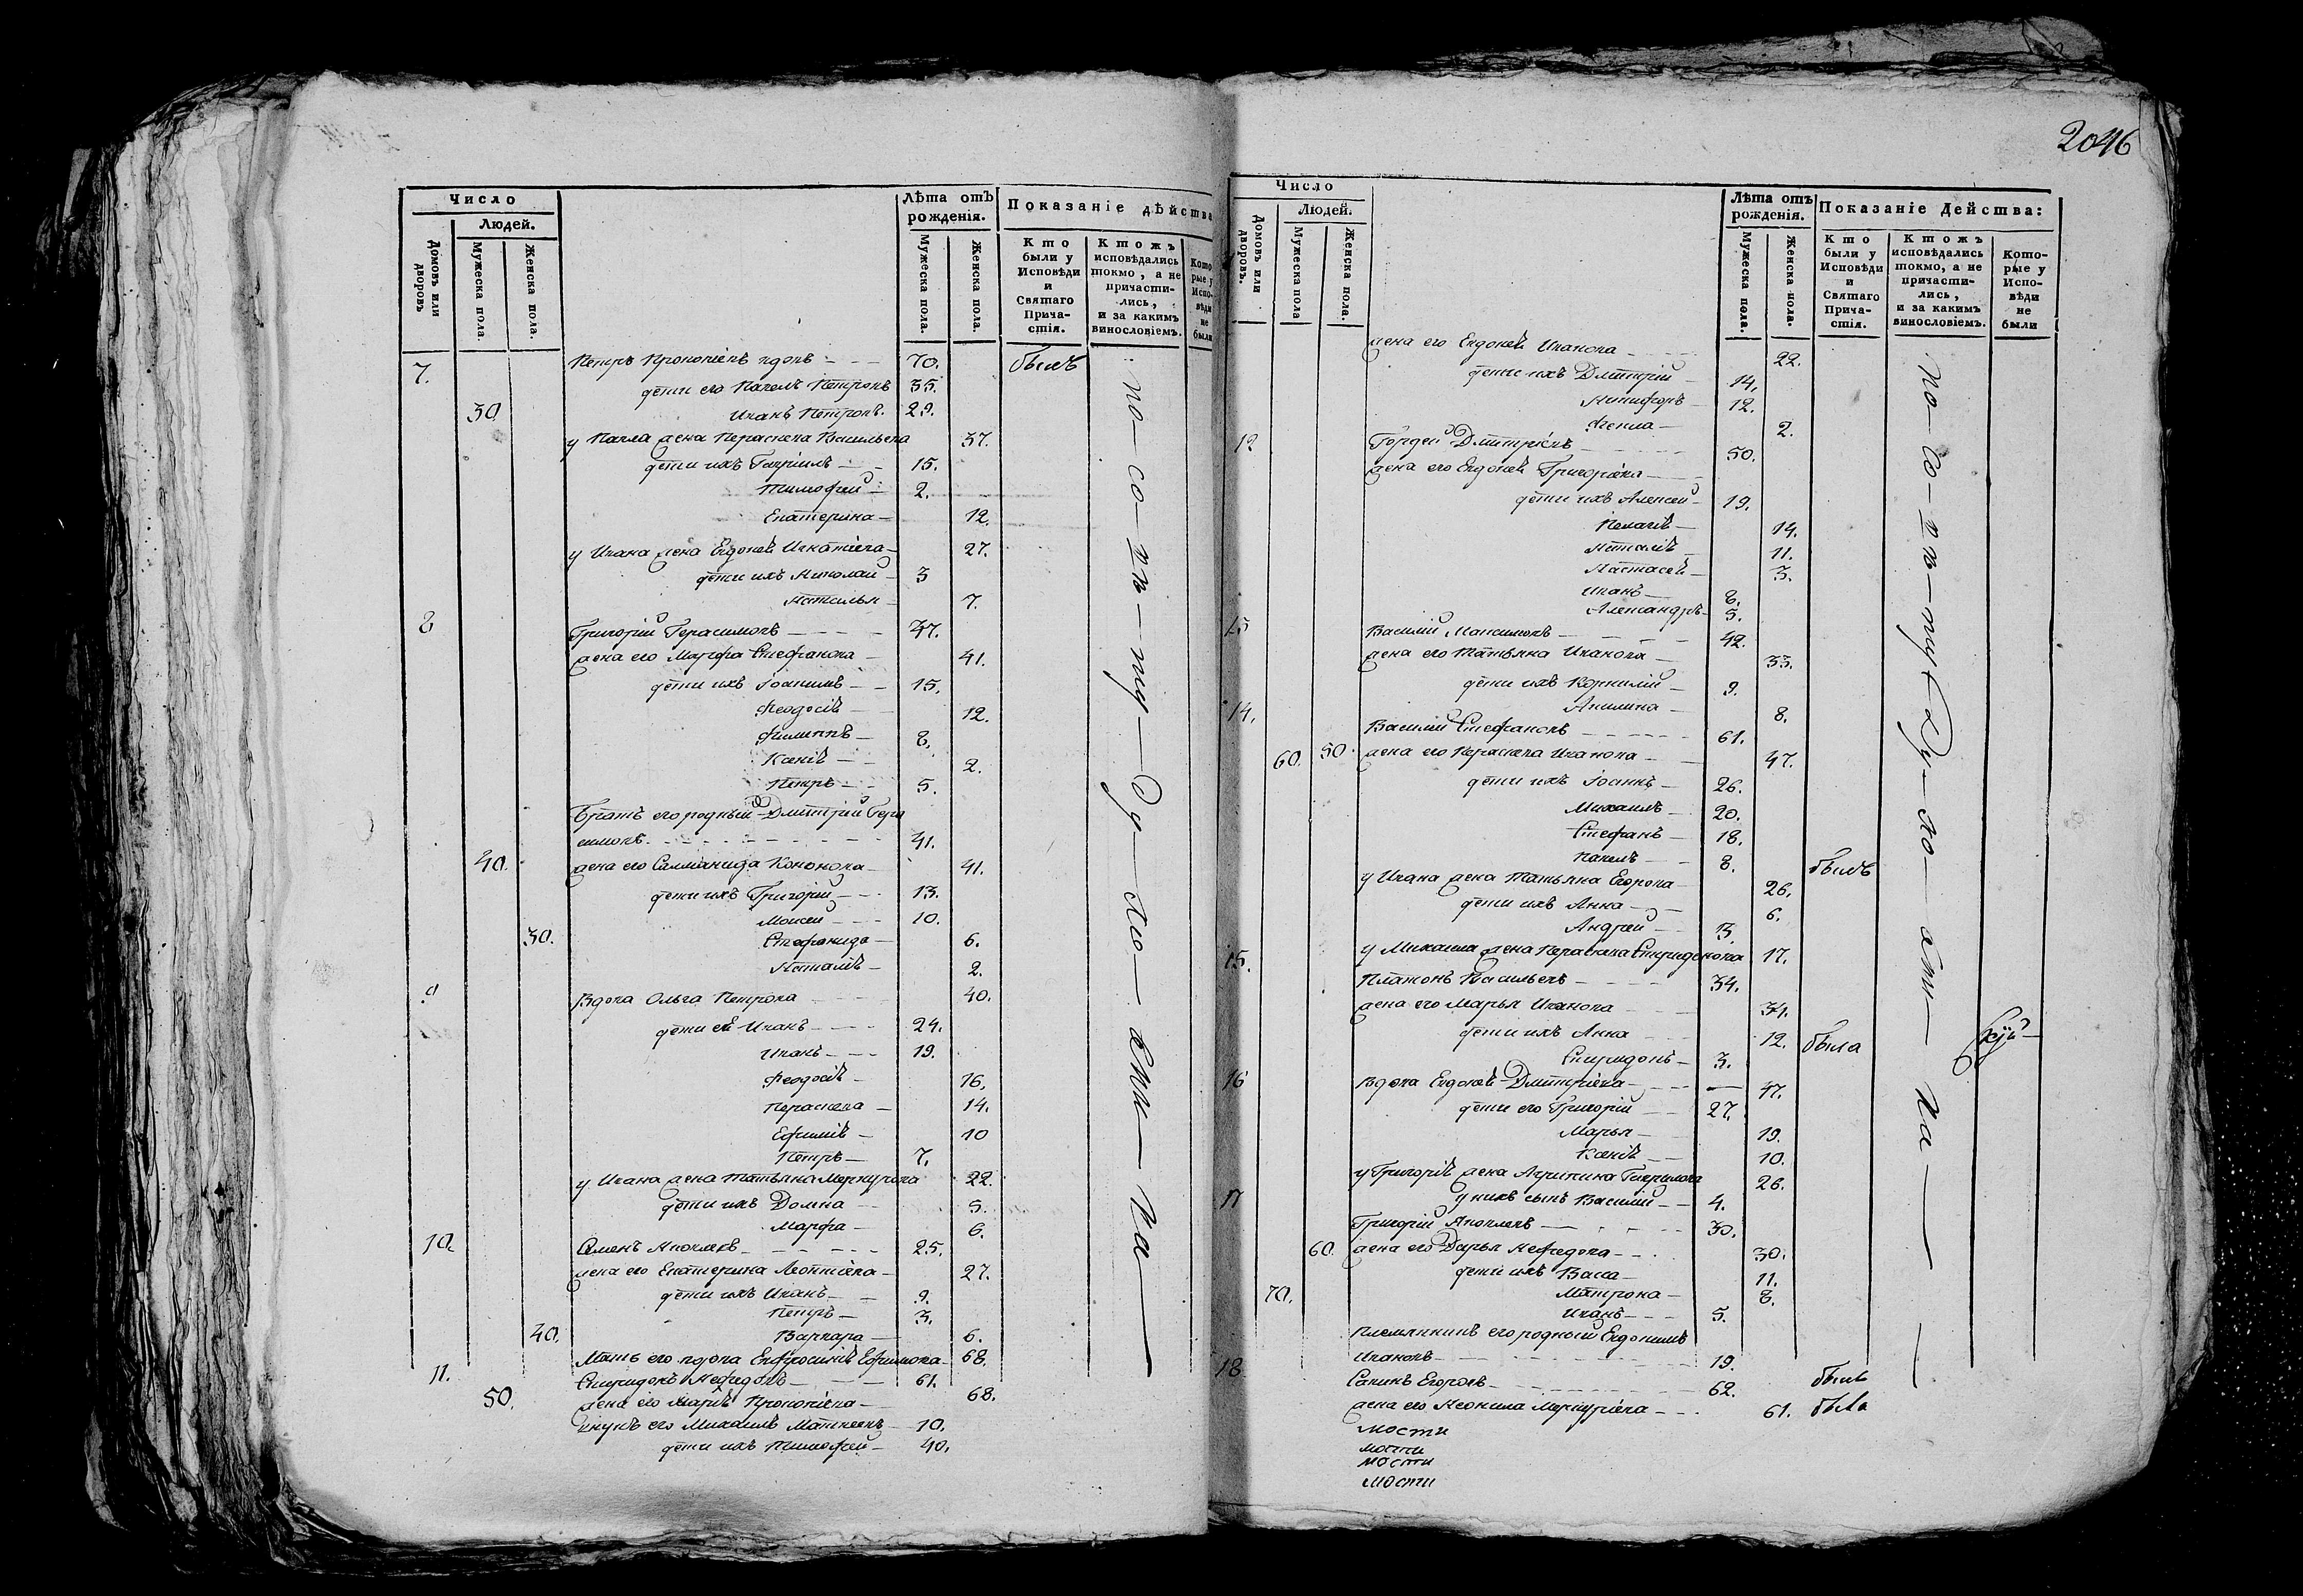 2046
Число
Людей.
Домовъ или дворовъ
Мужеска пола.
Женска пола.
Лѣта отъ рожденія.
Мужеска пола.
Женска пола.
Показаніе дѣйства
Кто были у Исповѣди и Святаго Прича-стія.
Ктожъ исповѣдались токмо, а не причасти-лись, и за какимъ винословіемъ.
Кото рые у Испо-вѣди не были
7. Петръ Прокопіевъ вдовъ 70. былъ
дѣти его Павелъ Петровъ 35.
30 Иванъ Петровъ. 29.
у Павла жена Параскева Васильева 37.
дѣти ихъ Гавріилъ 15.
Тимофей 2.
Екатерина 12.
у Ивана жена Евдокеѣ Игнатіева 27.
дѣти ихъ Николай 3
Наталья 7.
8 Григорій Герасимовъ 47.
жена его Марфа Стефанова 41.
дѣти ихъ Іоакимъ 15.
Феодосіѣ 12.
Филиппъ 8.
Ксеніѣ 2.
Петръ 5.
Братъ его родный Дмитрій Гера
симовъ. 41.
40. жена его Саломанида Кононова 41.
дѣти ихъ Григорій 13.
Моисей 10.
30. Стефанида 6.
Наталіѣ 2.
9 Вдова Ольга Петрова 40.
дѣти еѣ Иванъ 24.
Иванъ 19.
Феодосіѣ 16.
Параскева 14.
Ефиміѣ 10
Петръ 7.
у Ивана жена Татьяна Меркурова 22.
дѣти ихъ Домна 5.
Марфа 6.
10. Семенъ Яковлевъ 25.
жена его Екатерина Леонтіева 27.
дѣти ихъ Иванъ 9.
Петръ 3.
40. Варвара 6.
Мать его вдова Евфросиніѣ Ефимова 68.
11. Спиридонъ Нефедовъ 61.
50. жена его Маріѣ Прокопіева 68.
внукъ его Михаилъ Матвеевъ 10.
дѣти ихъ Тимофей 40.
Число
Людей.
Домовъ или дворовъ.
Мужеска пола
Женска пола.
Лѣта отъ рожденія.
Мужеска пола.
Женска пола.
Показаніе Действа:
Кто были у Исповѣди и Святаго Прича-стія.
Ктожъ исповѣдались токмо, а не причасти-лись, и за какимъ винословіемъ.
Кото-рые у Испо-вѣди не были
жена его Евдокеѣ Иванова 22.
дѣти ихъ Дмитрій 14.
Никифоръ 12.
Фекла 2.
12 Гордей Дмитріевъ 50.
жена его Евдокеѣ Григоріева
дѣти ихъ Алексей 19.
Пелагіѣ 14.
Наталіѣ 11.
Настасеѣ 3.
Иванъ 8.
Александръ 5.
Василій Максимовъ 42.
жена его Татьяна Иванова 33.
дѣти ихъ Корнилій 9.
Акилина 8.
14. Василій Стефановъ 61.
60. 50. жена его Параскева Иванова 47.
дѣти ихъ Іоаннъ 26.
Михаилъ 20.
Стефанъ 18.
Павелъ 8. былъ
у Ивана жена Татьяна Егорова 26.
дѣти ихъ Анна 6.
Андрей 3.
15. у Михаила жена Параскева Спиридонова 17.
Платонъ Васильевъ 34.
жена его Марья Иванова 34.
дѣти ихъ Анна 12. была
Спиридонъ 3.
16 Вдова Евдокеѣ Дмитріева 47.
дѣти его Григорій 27.
Марья 19.
Ксеніѣ 10.
у Григоріѣ жена Агрипина Гаврилова 26.
17 у нихъ сынъ Василій 4.
Григорій Яковлевъ 30.
60. жена его Дарья Нефедова 30.
дѣти ихъ Васса 11.
70. Матрона 8.
Иванъ 5.
племянникъ его родный Евдокимъ
Ивановъ 19.
18 Савинъ Егоровъ 62. былъ
жена его Неонила Меркуріева 61. была
мости
мости
мости
мости